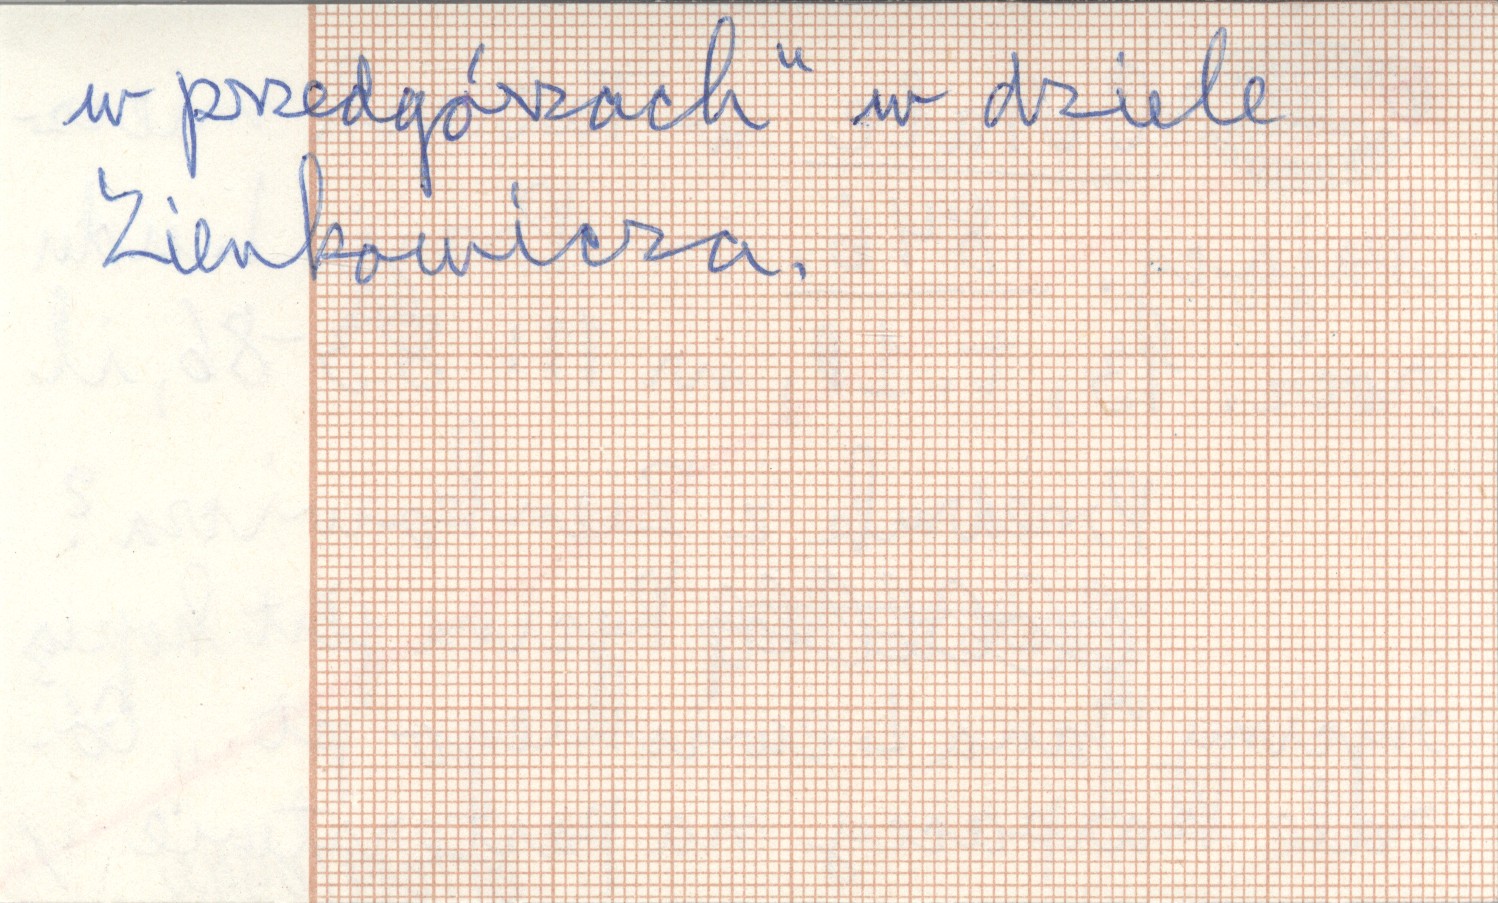 w przedgórzach" w dziele
Zienkowicza.